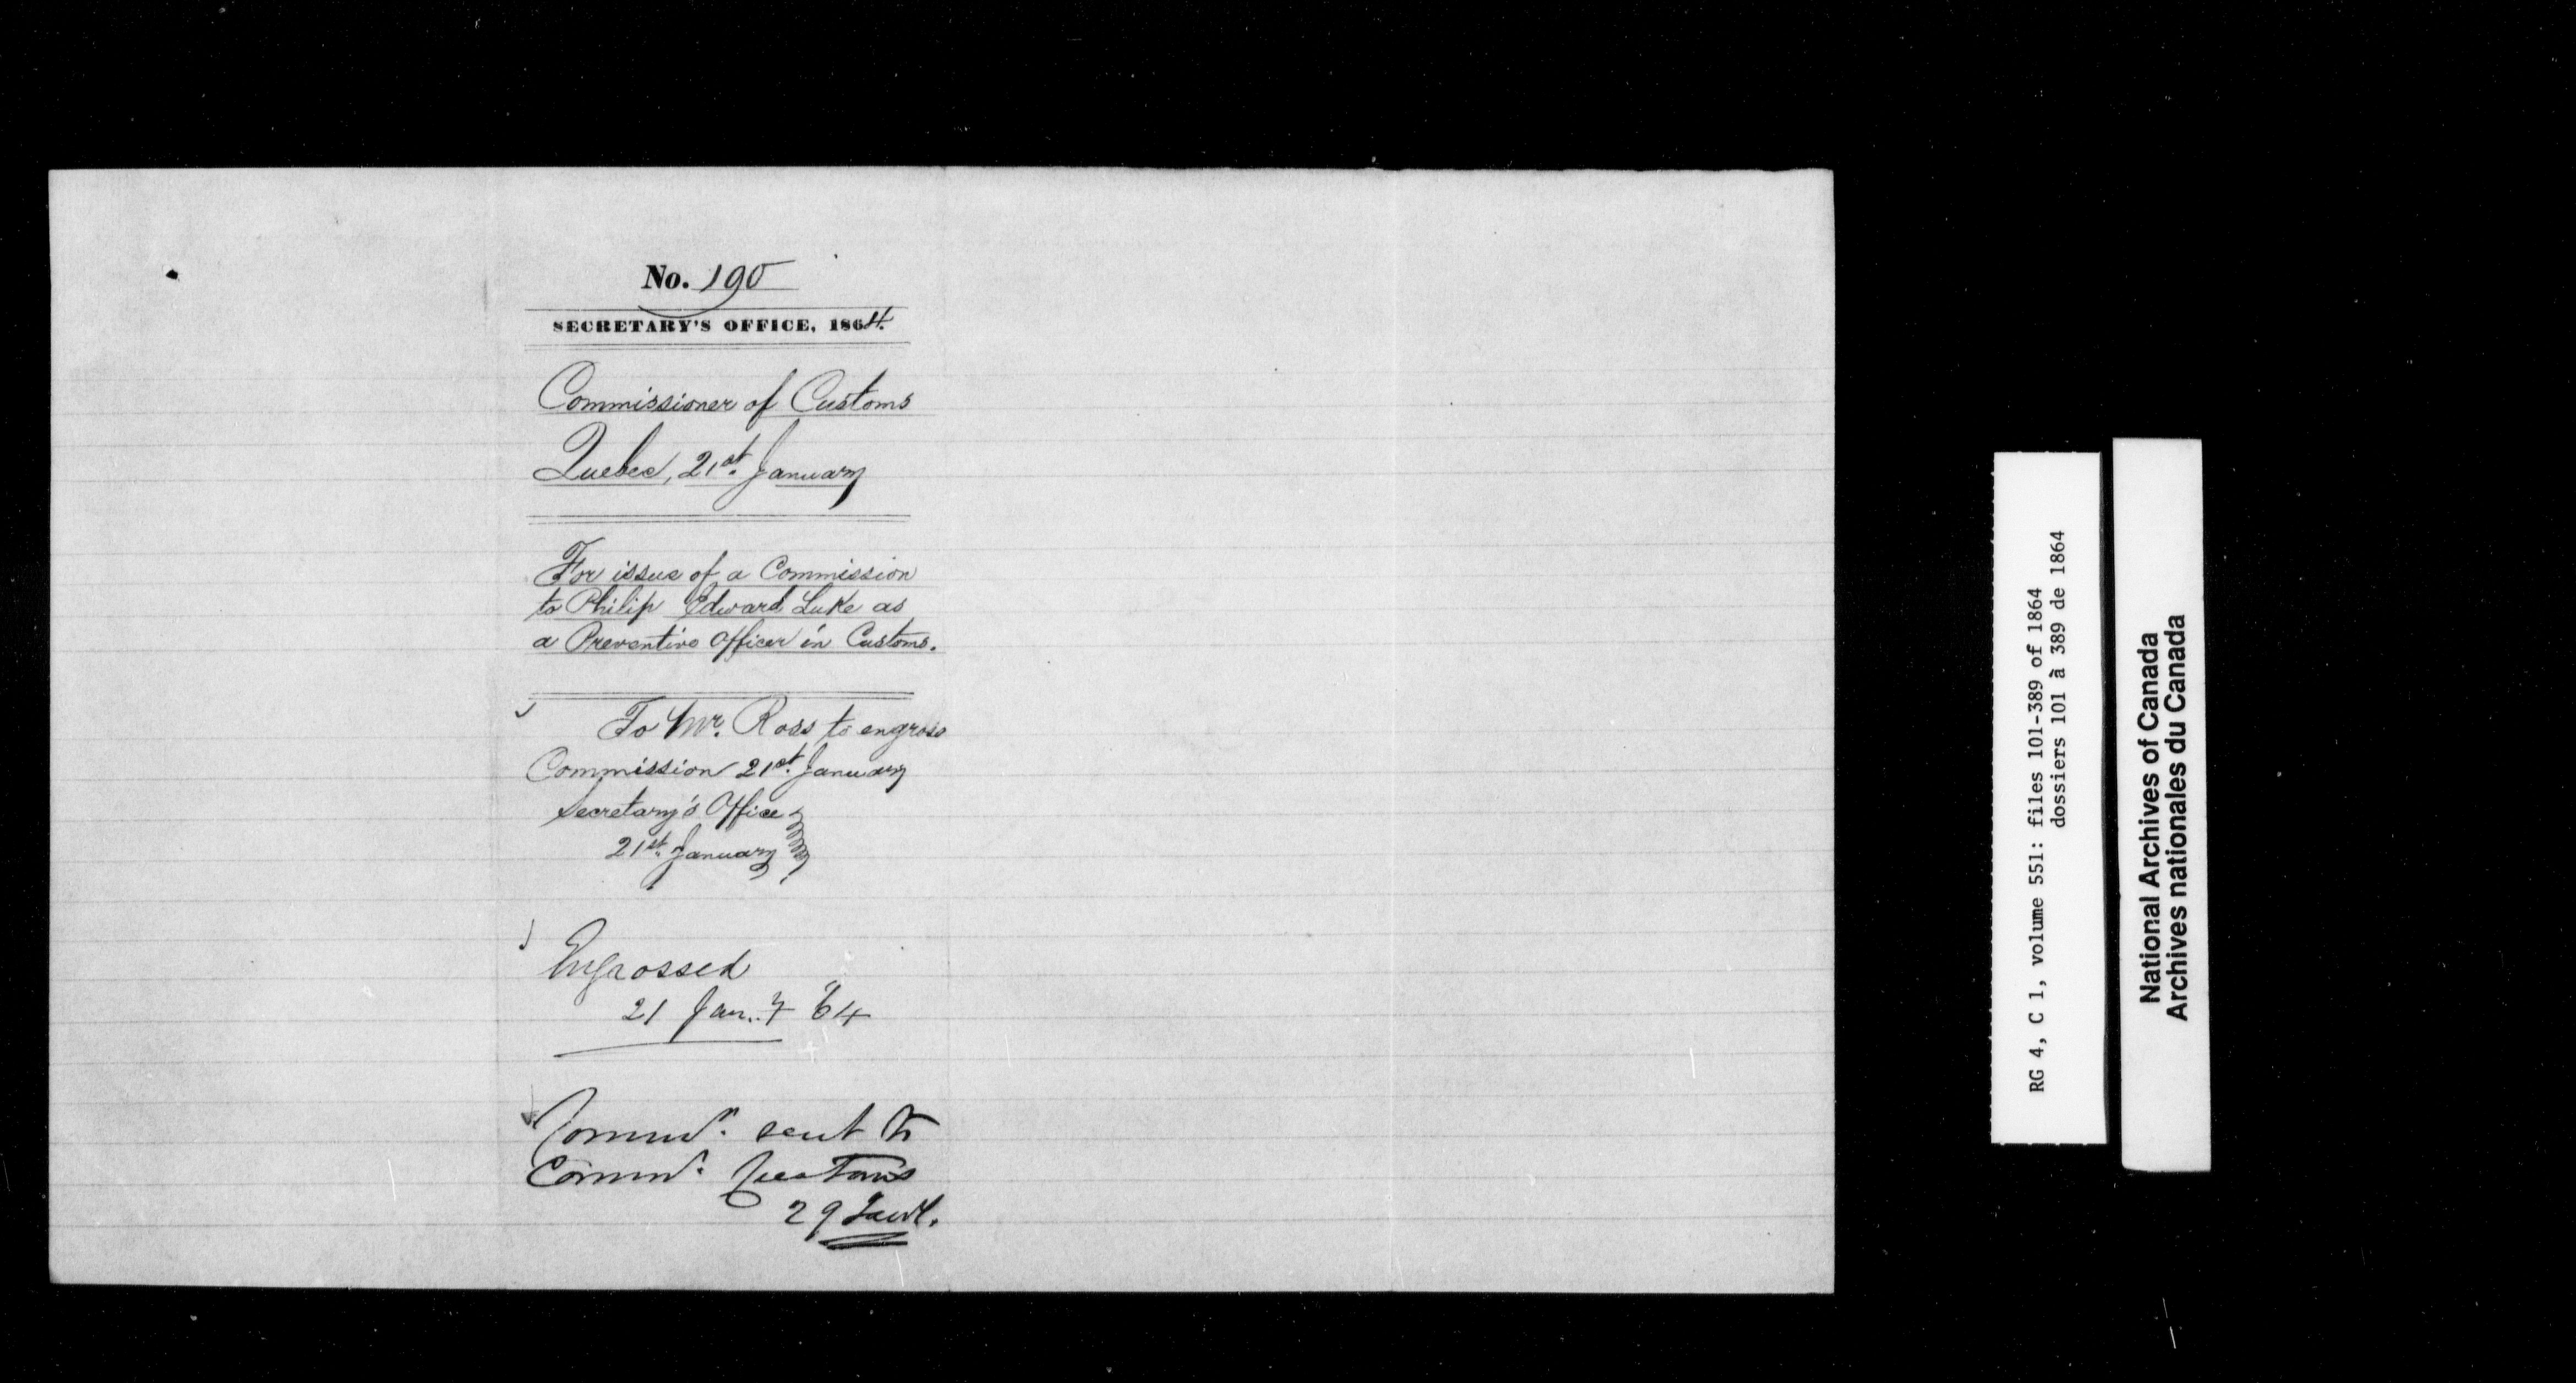 No. 190
SECRETARY'S OFFICE, 1864.
Commissioner of Customs
Quebec, 21st. January
For issue of a Commission
to Philip Edward Luke as
a Preventive Officer in Customs.
To Mr. Ross to engross
Commission 21st. January
Secretary's Office
21st. January
Engrossed
21 Jan.y 64
Commn. sent to
Commr. Customs
29 Jany.
RG 4, C 1, volume 551: files 101-389 of 1864
dossiers 101 à 389 de 1864
National Archives of Canada
Archives nationales du Canada